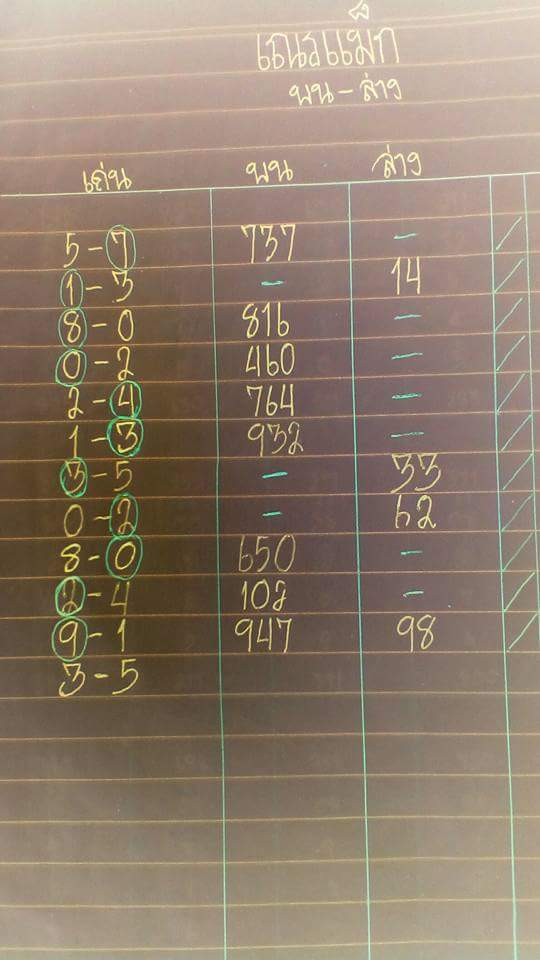 เณรแม็ก
บน - ล่าง
เด่น บน ล่าง
5 - 7 737 -
1 - 3 - 14
8 - 0 816 -
0 - 2 460 -
2 - 4 764 -
1 - 3 932 -
3 - 5 - 33
0 - 2 - 62
8 - 0 650 -
2 - 4 102 -
9 - 1 947 98
3 - 5